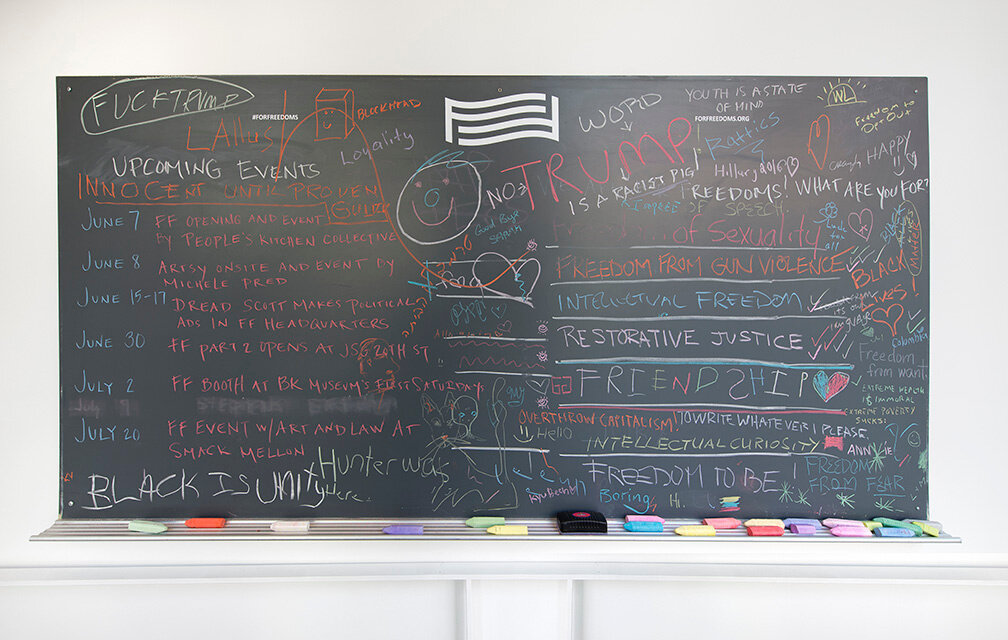 FUCK TRUMP
#FORFREEDOMS
BLOCKHEAD
LAllus
Loyality
UPCOMING EVENTS
INNOCENT UNTIL PROVEN
GUILTY
JUNE 7 FF OPENING AND EVENT
BY PEOPLE'S KITCHEN COLLECTIVE
JUNE 8 ARTSY ONSITE AND EVENT BY
MICHELE PRED
JUNE 15-17 DREAD SCOTT MAKES POLITICAL
ADS IN FF HEADQUARTERS
JUNE 30 FF PART 2 OPENS AT JSG 20TH ST
JULY 2 FF BOOTH AT BK MUSEUM'S FIRST SATURDAYS
July 9
JULY 20 FF EVENT W/ART AND LAW AT
SMACK MELLON
BLACK IS UNITY
Hunter was
Here.
WORD
NO
TRUMP
IS A RACIST PIG!
YOUTH IS A STATE
OF MIND
FORFREEDOMS.ORG
Rattics
Hillary 2016
WL
Freedom to
Opt Out
HAPPY
FREEDOMS! WHAT ARE YOU FOR?
OF SPEECH
Good Bye
of Sexuality
for
all
BLACK
FREEDOM FROM GUN VIOLENCE
INTELLECTUAL FREEDOM
RESTORATIVE JUSTICE
Columbia
Freedom
from want.
FRIENDSHIP
EXTREME WEALTH
IS IMMORAL
EXTREME POVERTY
SUCKS!
guy
OVERTHROW CAPITALISM!
TO WRITE WHATEVER I PLEASE.
Hello
INTELLECTUAL CURIOSITY
ANN
FREEDOM TO BE!
FREEDOM
FROM FEAR
Boring.
Hi